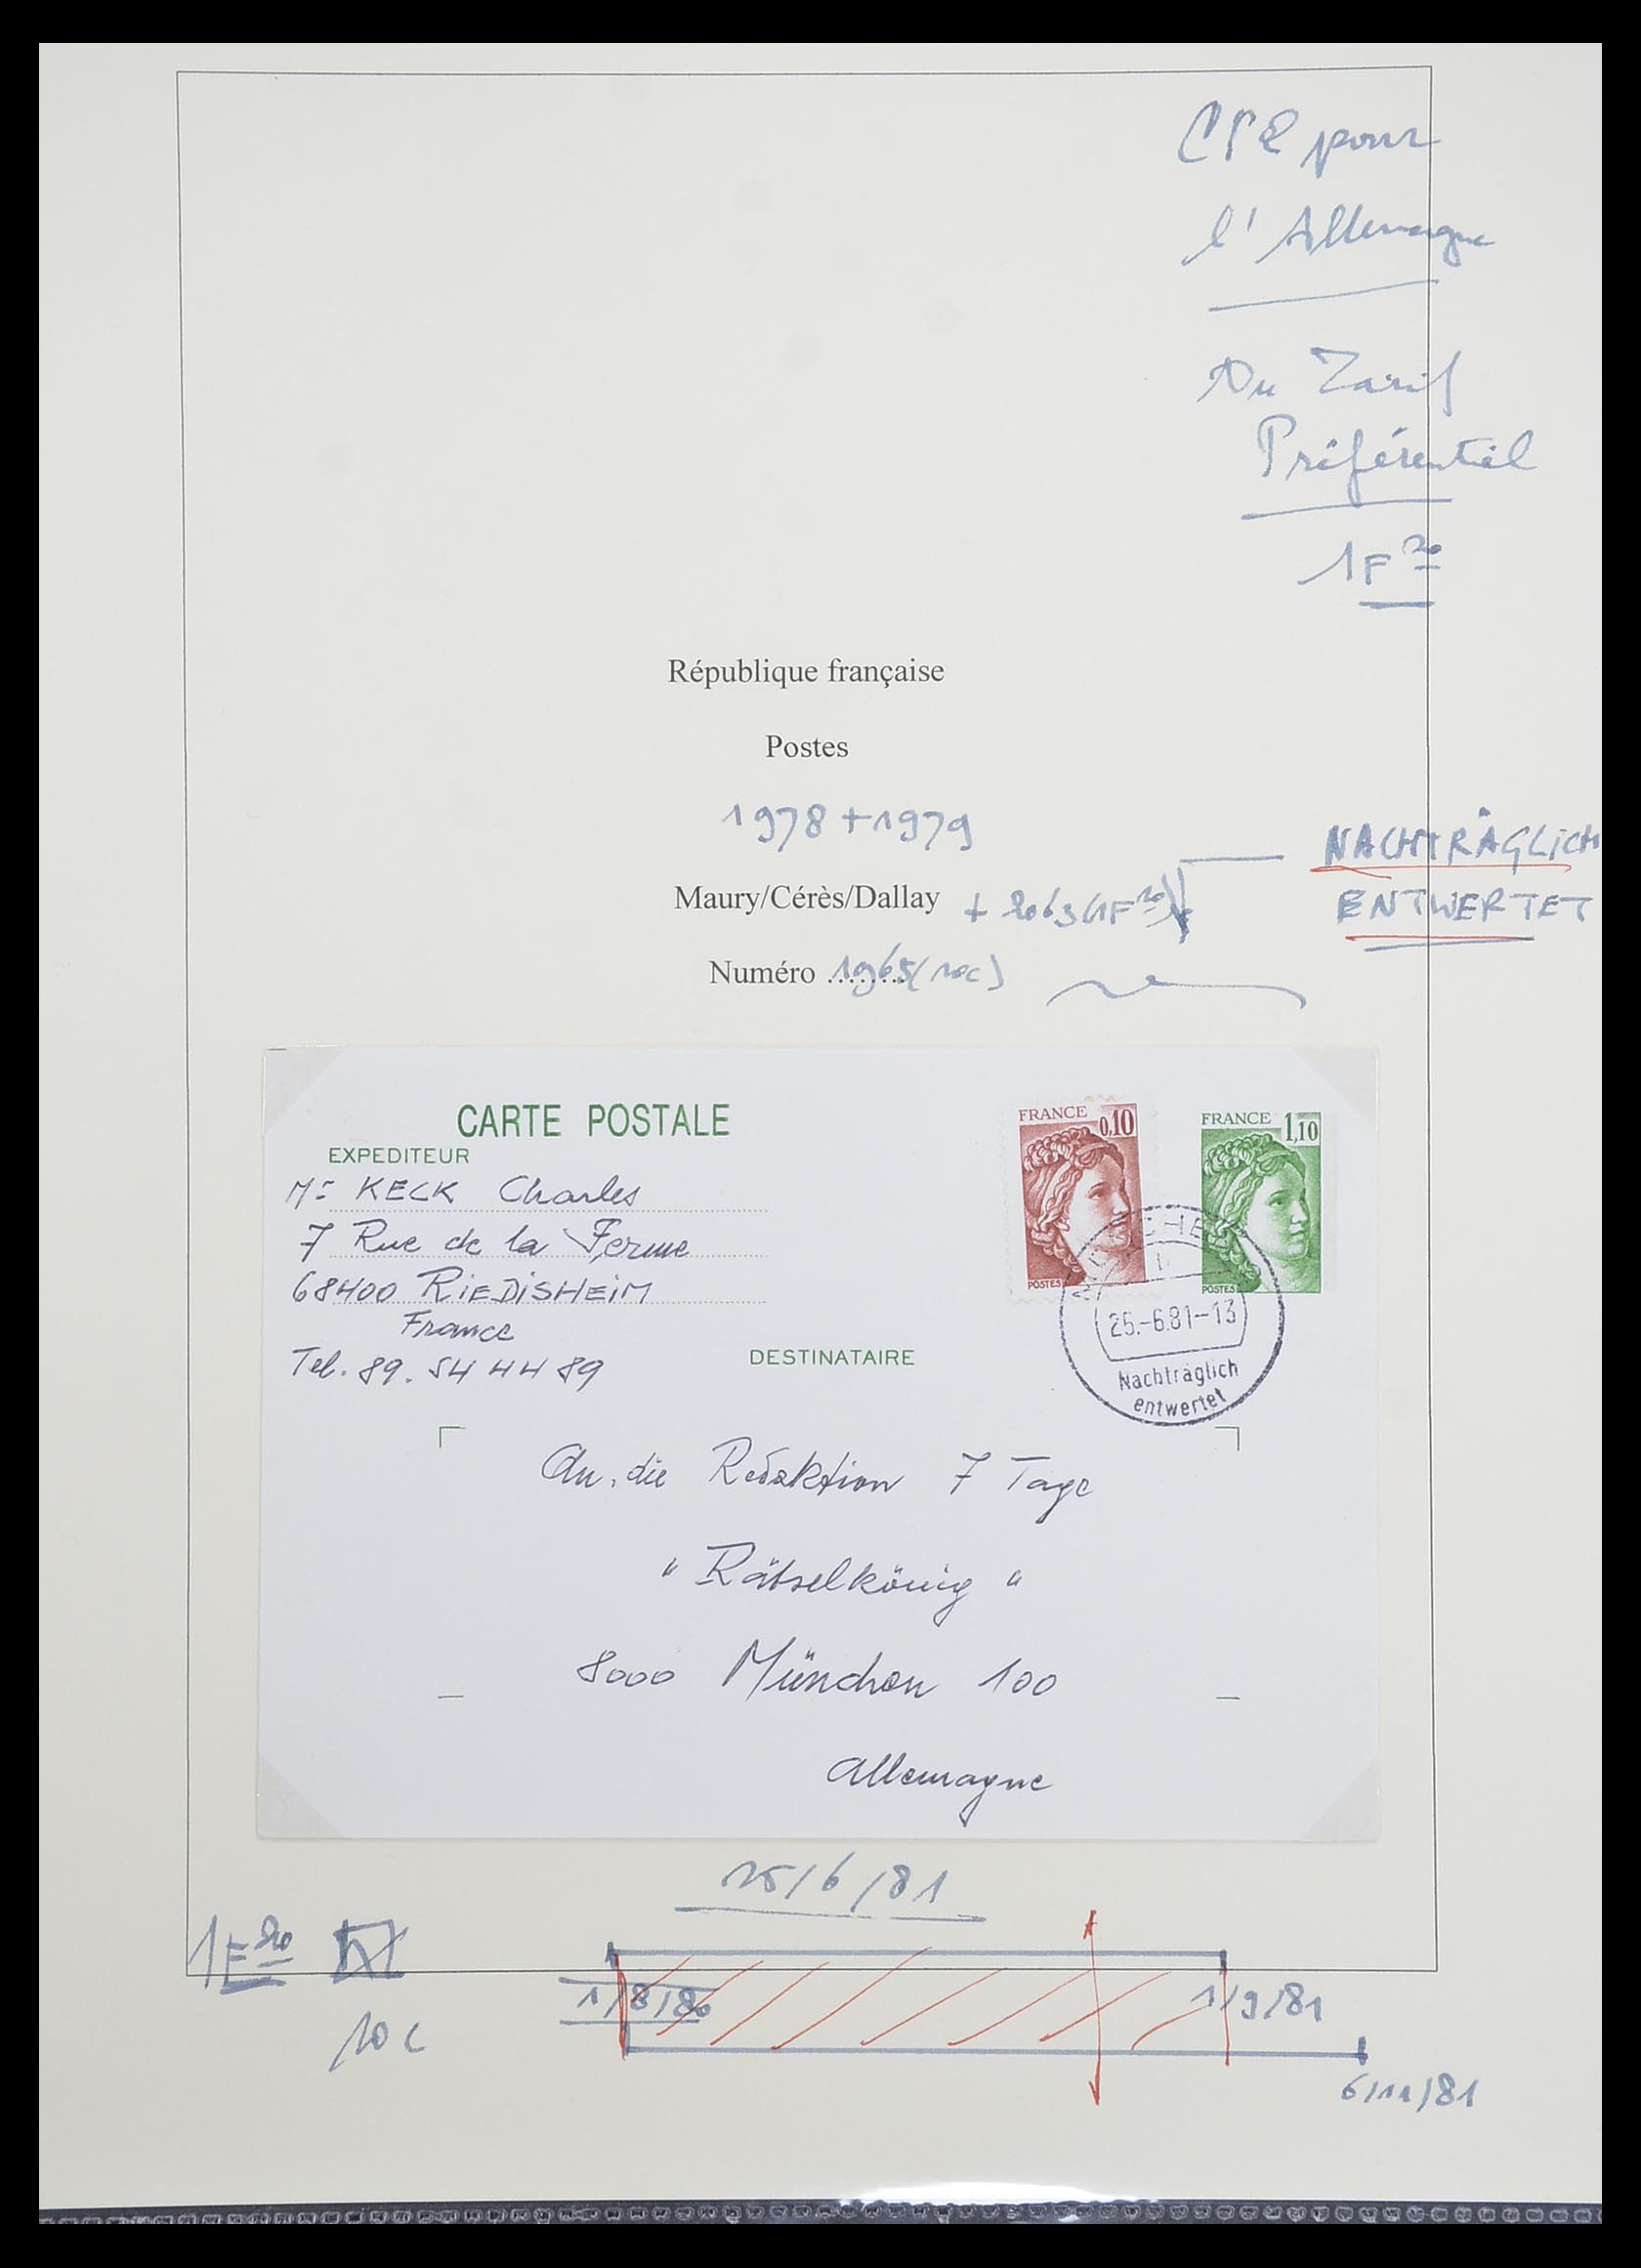 pour
l'Allemagne
Au Tarif
Préférentiel
1F20
République française
Postes
1978 + 1979
NACHTRÄGLICH
ENTWERTET
Maury/Cérès/Dallay + 2063 (1F20)
Numéro ........ 1965 (10c)
CARTE POSTALE
EXPEDITEUR
Mr KECK Charles
7 Rue de la Ferme
68400 RIEDISHEIM
France
Tel. 89. 54 44 89
FRANCE 0,10
POSTES
FRANCE 1,10
POSTES
b
25.-6.81-13
Nachträglich
entwertet
DESTINATAIRE
An die Redaktion 7 Tage
"Rätselkönig"
8000 München 100
Allemagne
25/6/81
1F20
1/8/80
1/9/81
10c
6/11/81